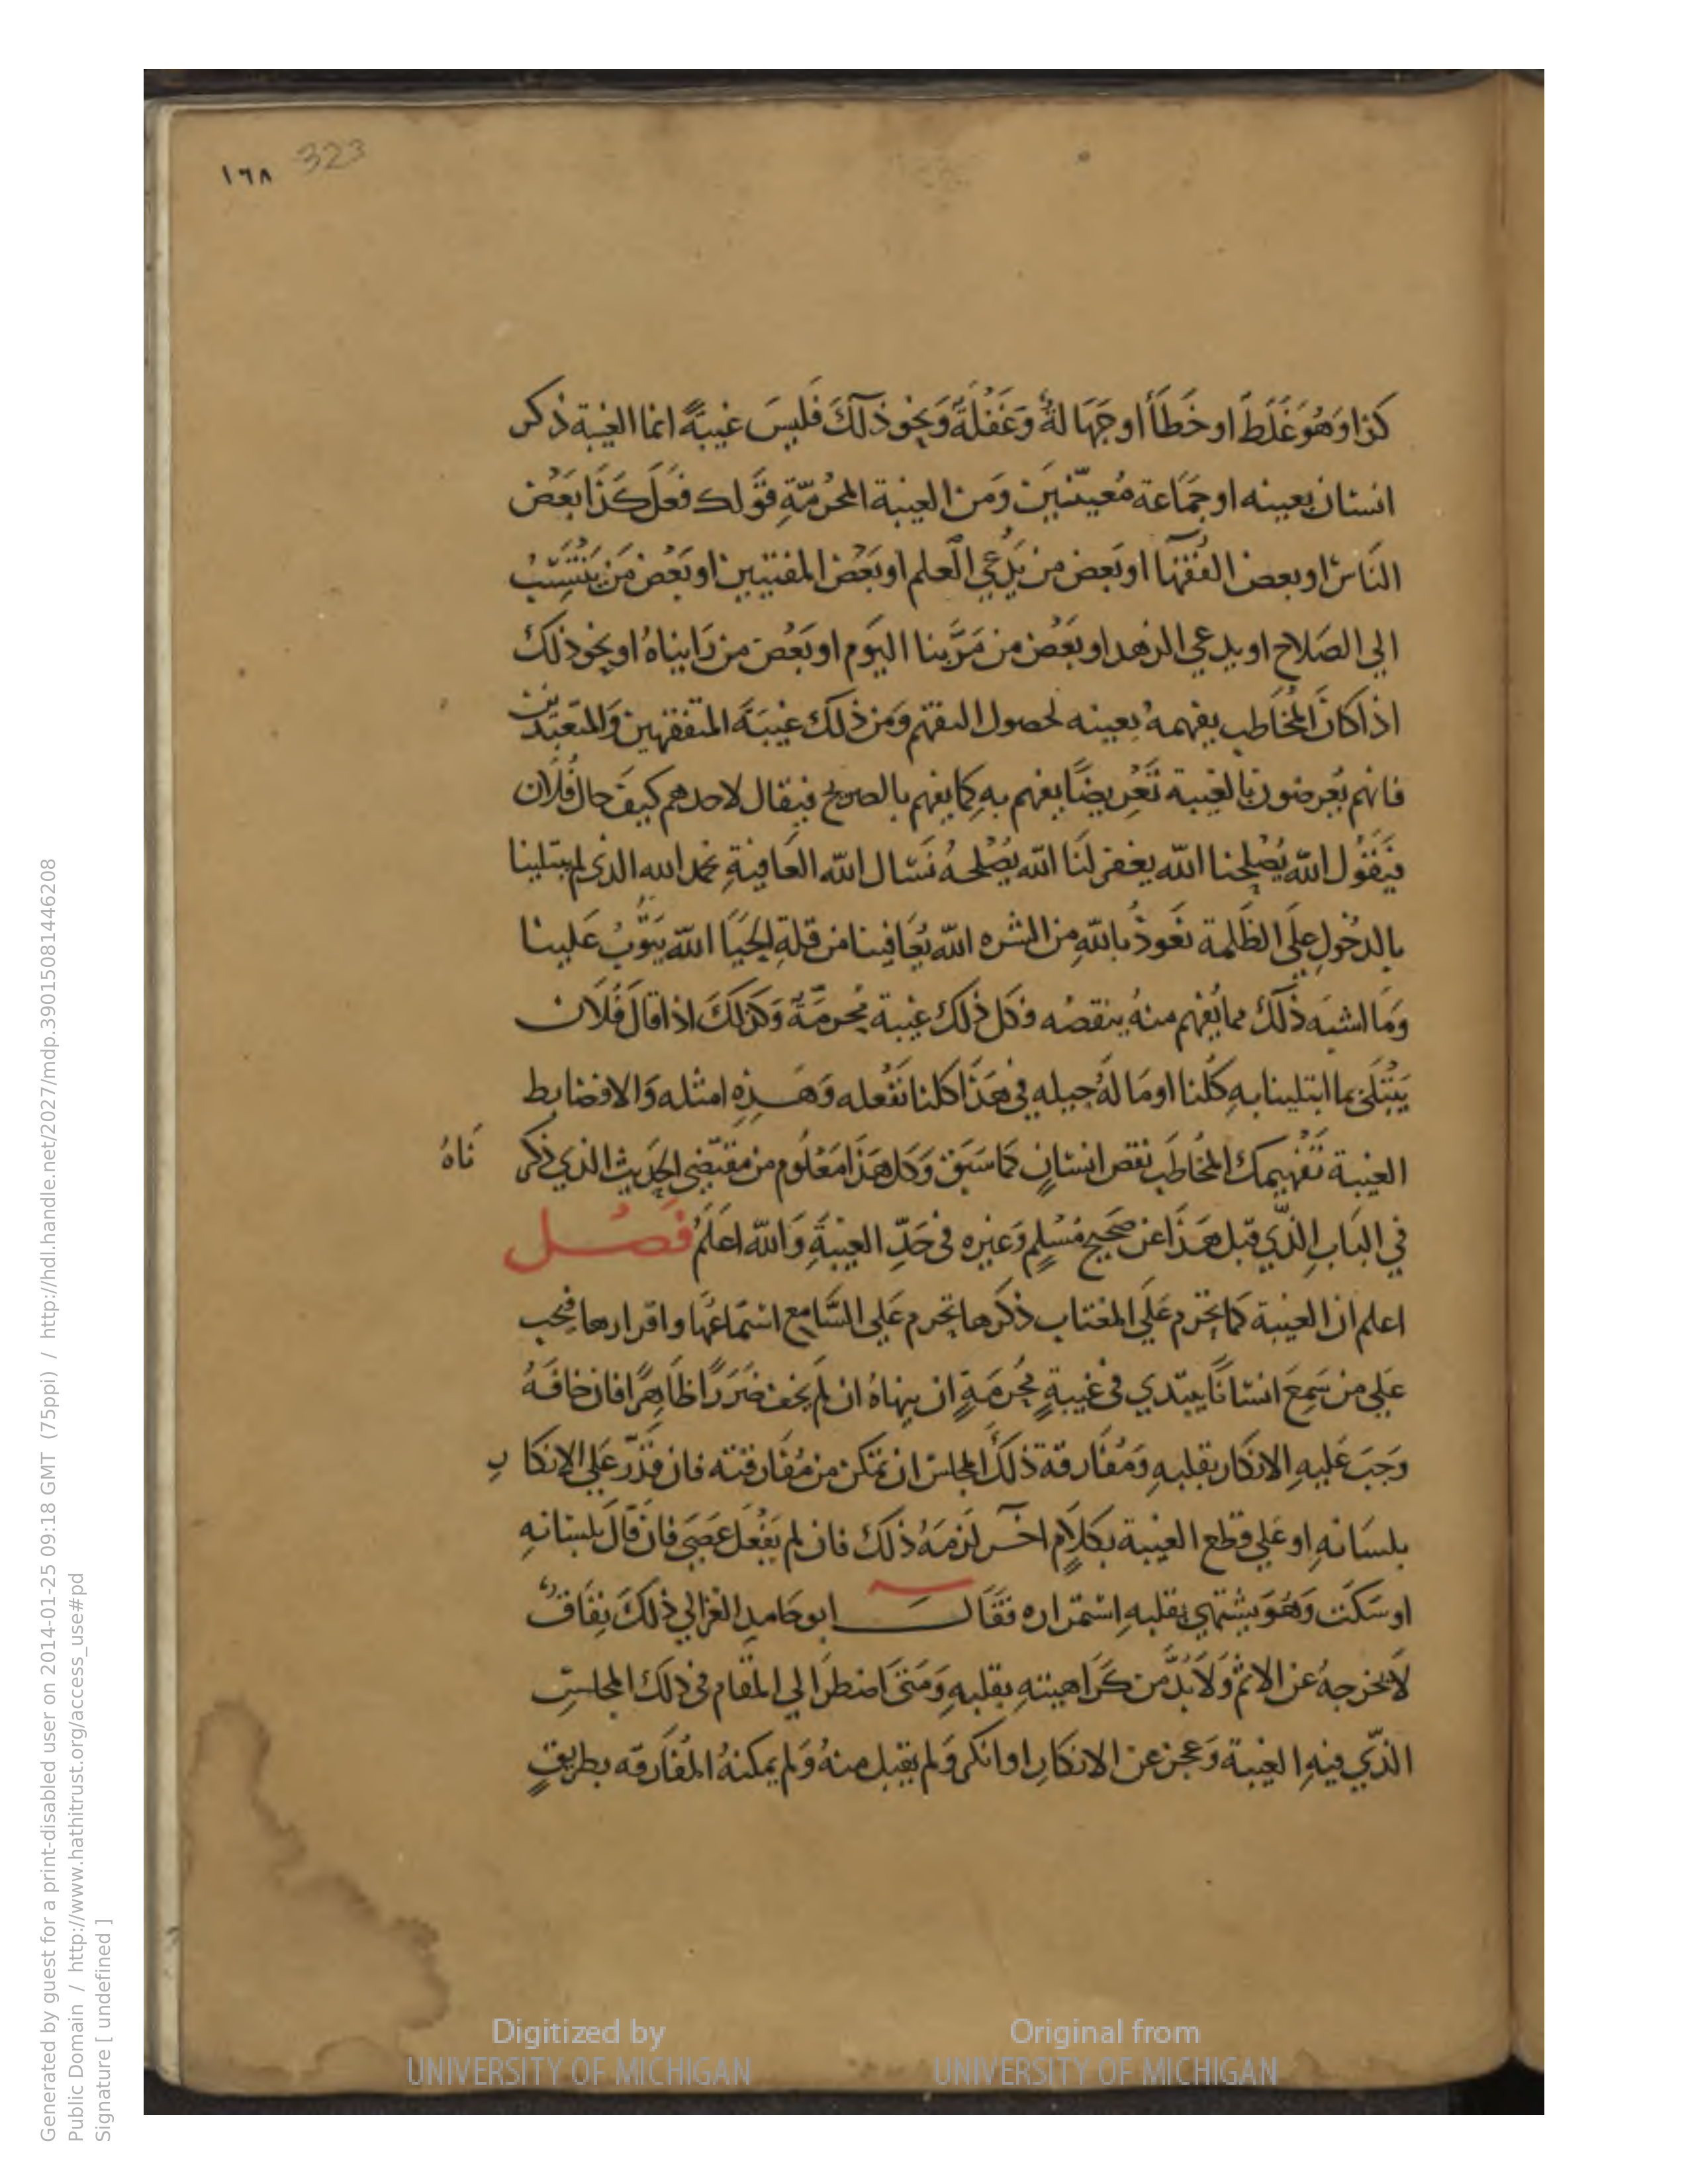 ١٦٨ 323
كذا وَهُوَ غَلَطً او خَطَأ او جَهَالةُ وَغَفْلَةً وَنحوذَلكَ فَليسَ غيبَةً انما الغيبة ذكر
انسان بعينه او جَمَاعة مُعيّنينَ وَمن الغيبة المحُرمّةِ قَوَلك فعَل كَذَا بَعْض
النَاس او بعض الفُقَهَا او بَعض من يَدَّعِي العلم او بَعْض المفتيين او بَعْض مَن يَنْتَسِبُ
الي الصَلاح او يدعي الزهد او بَعْض من مَرَّ بنا اليَوم او بَعْض من رَايناهُ او نحوذلكَ
اذا كانَ المُخَاطب يفهمهُ بعينه لحصول التفهّم وَمن ذلكَ غيبَةَ المتفقهين وَالمتَعبّدين
فانهم يُعرضون بالغيبة تَعْرِيضًا يفهم بهِ كما يفهم بالصريح فيقال لاحدهم كيفَ حال فُلان
فيَقُول الله يُصْلِحنا الله يغفر لنَا الله يُصْلحهُ نَسَال الله العَافيةِ نحمد الله الذي لم يبتلينا
بالدخُولِ عَلَى الظَلمة نَعوذُ بالله من الشره الله يُعَافينا من قلةِ الحَيَا الله يَتوُّبُ عَلينا
وَمَا اشبَه ذلكَ مما يُفهم منهُ ينقصُه فكل ذلك غيبة مُحرمَّةٌ وَكذلَكَ اذا قالَ فُلَان
يَبْتَلَى بما ابتلينا بهِ كُلنا او مَا لهُ حيله في هَذَا كلنا نَفْعله وَهَذِهِ امثله وَالا فضابط
الغيبة تَفْهيمك المُخاطَب نقص انسَانٍ كَما سَبَقَ وَكل هَذَا مَعْلُوم من مقتضي الحَديث الذي ذكر نَاهُ
في البَابِ الذّي قبل هَذَا عَن صَحيح مُسْلمٍ وَغيره في حَدِّ الغيبَةِ وَالله اعلَمُ فَصْل
اعلم ان الغيبة كما يحَرم عَلَي المغتاب ذكرها يحَرم عَلي السَّامع استماعُهَا واقرارها فيجب
عَلي من سَمِعَ انسانًا يبتدي في غيبةٍ مُحَرمَةٍ ان ينهاهُ ان لم يَخف ضَرَرًا ظَاهِرًا فان خافَهُ
وَجَبَ عَليهِ الانكار بقلبهِ وَمُفَارقة ذلكَ المجلس ان تمكن من مُفَارقته فان قدَرَ عَلي الاِنكا رِ
بلسَانهِ او عَلي قطع الغيبة بكلَامٍ اخَر لَزمَهُ ذلكَ فان لم يَفْعَل عَصَى فان قالَ بلسَانهِ
او سَكتَ وَهُوَ يشتهي بقلبهِ استمْراره فقَالَ ابو حَامدِ الغزالي ذلكَ نِفَاقٌ
لَا يخرجهُ عَن الاثم وَلَا بُدَّ من كَراهيتهِ بقلبهِ وَمَتَى اضطرَ الي المقَام في ذلكَ المجلسِ
الذّي فيهِ الغيبة وَعجز عن الانكارِ او انكر وَلم يقبل منهُ وَلم يمكنهُ المُفَارقه بطريقٍ
Digitized by UNIVERSITY OF MICHIGAN
Original from UNIVERSITY OF MICHIGAN
Generated by guest for a print-disabled user on 2014-01-25 09:18 GMT (75ppi) / http://hdl.handle.net/2027/mdp.39015081446208
Public Domain / http://www.hathitrust.org/access_use#pd
Signature [ undefined ]